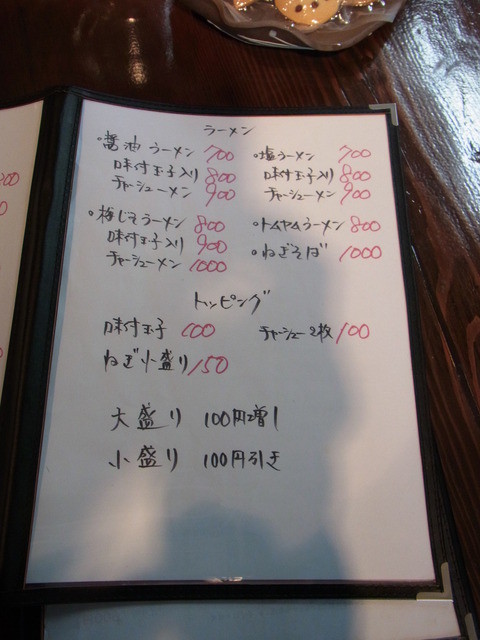 ラーメン
・醤油ラーメン 700
味付玉子入り 800
チャーシューメン 900
・塩ラーメン 700
味付玉子入り 800
チャーシューメン 900
・梅じそラーメン 800
味付玉子入り 900
チャーシューメン 1000
・トムヤムラーメン 800
・ねぎそば 1000
トッピング
味付玉子 100
チャーシュー2枚 100
ねぎ小盛り 150
大盛り 100円増し
小盛り 100円引き